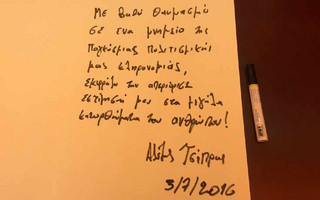 Με βαθύ θαυμασμό
σε ένα μνημείο της
παγκόσμιας πολιτισμικής
μας κληρονομιάς,
εκφράζω την απέραντη
εκτίμησή μου στα μεγάλα
κατορθώματα του ανθρώπου!
Αλέξης Τσίπρας
3/7/2016